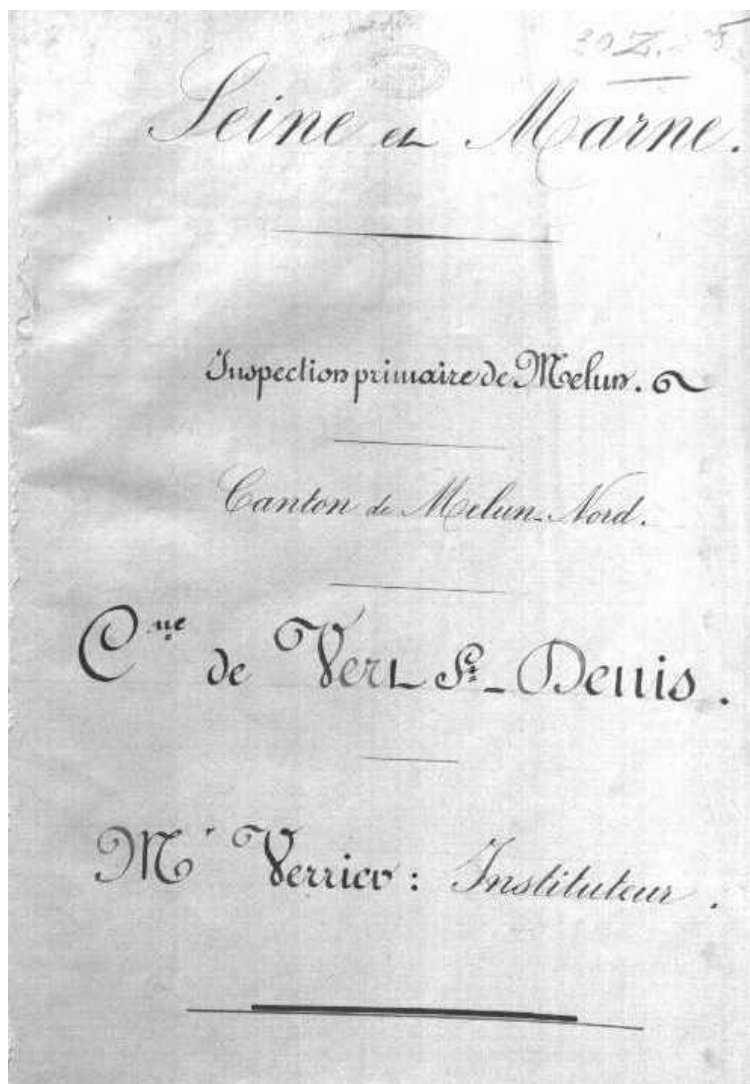 30 Z
Seine et Marne.
Inspection primaire de Melun.
Canton de Melun-Nord.
Cne de Vert St-Denis.
Mr Verrier : Instituteur.